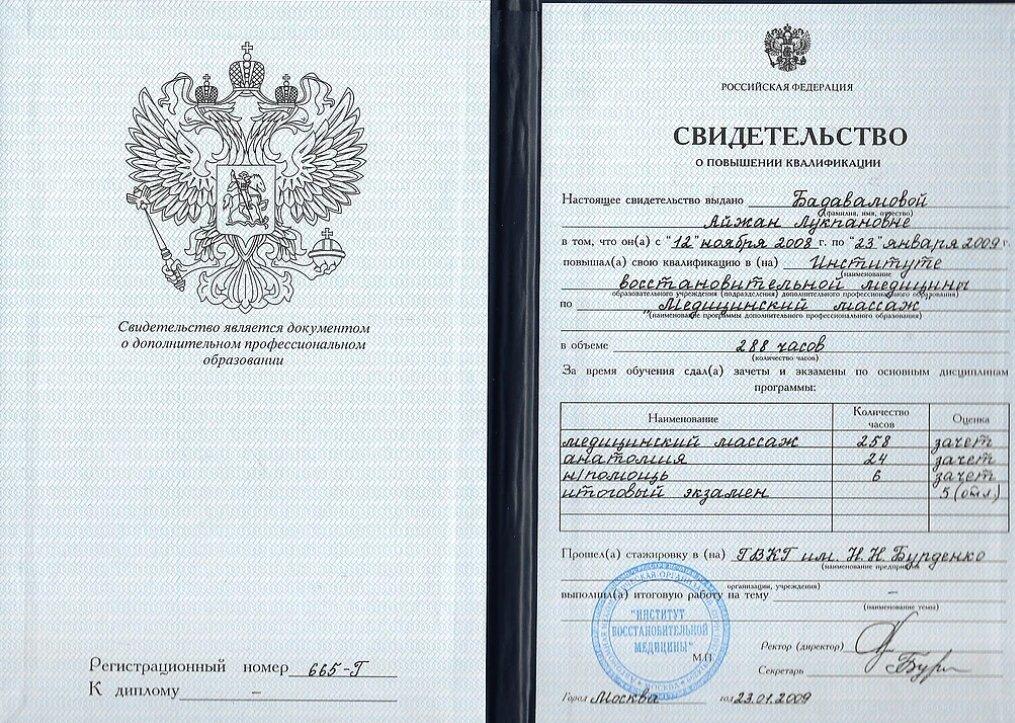 Свидетельство является документом
о дополнительном профессиональном
образовании
Регистрационный номер 665-Г
К диплому –
РОССИЙСКАЯ ФЕДЕРАЦИЯ
СВИДЕТЕЛЬСТВО
О ПОВЫШЕНИИ КВАЛИФИКАЦИИ
Настоящее свидетельство выдано Бадаваловой
(фамилия, имя, отчество)
Айжан Лукпановне
в том, что он(а) с "12" ноября 2008 г. по "23" января 2009 г.
повышал(а) свою квалификацию в (на) Институте
(наименование
восстановительной медицины
образовательного учреждения (подразделения) дополнительного профессионального образования)
по "Медицинский массаж
(наименование программы дополнительного профессионального образования)
в объеме 288 часов
(количество часов)
За время обучения сдал(а) зачеты и экзамены по основным дисциплинам
программы:
Наименование Количество часов Оценка
медицинский массаж 258 зачет
анатомия 24 зачет
н/помощь 6 зачет
итоговый экзамен 5 (отл.)
Прошел(а) стажировку в (на) ГВКГ им. Н.Н. Бурденко
(наименование предприятия,
организации, учреждения)
выполнил(а) итоговую работу на тему –
(наименование темы)
"ИНСТИТУТ
ВОССТАНОВИТЕЛЬНОЙ
МЕДИЦИНЫ"
М.П.
Ректор (директор)
Секретарь
Город Москва год 23.01.2009